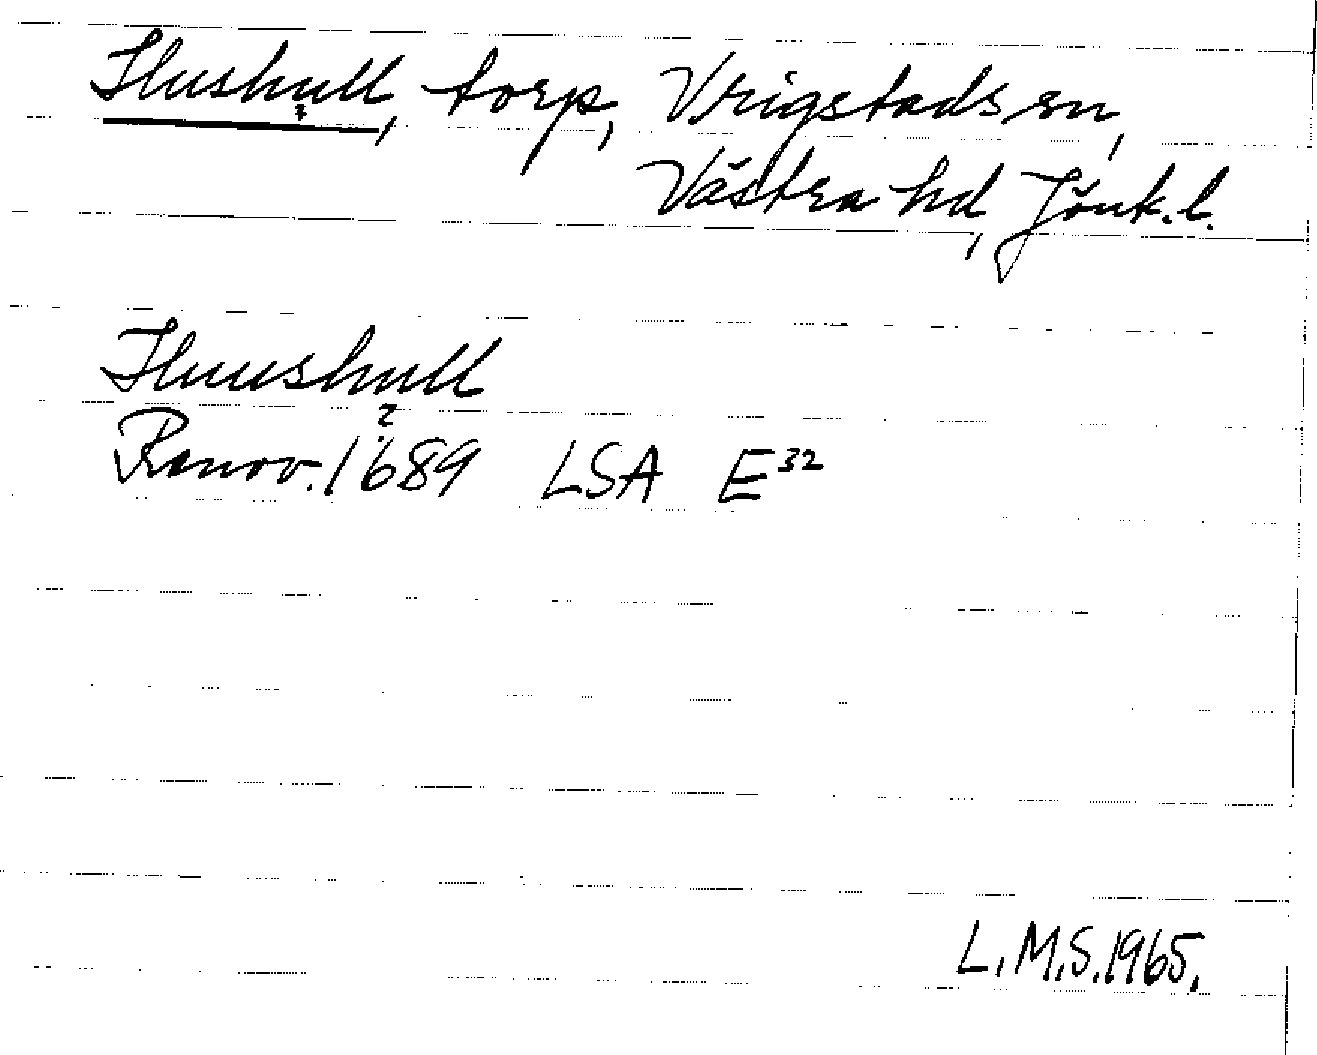 Slushult, torp, Vrigstads sn,
Västra hd, Jönk. l.
Sluushult
?
Renov. 1689 LSA E32
L.M.S. 1965.